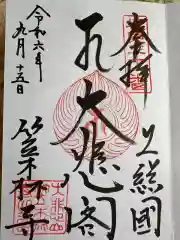 奉拝
上総國
大悲閣
令和六年
九月十五日
笠森寺